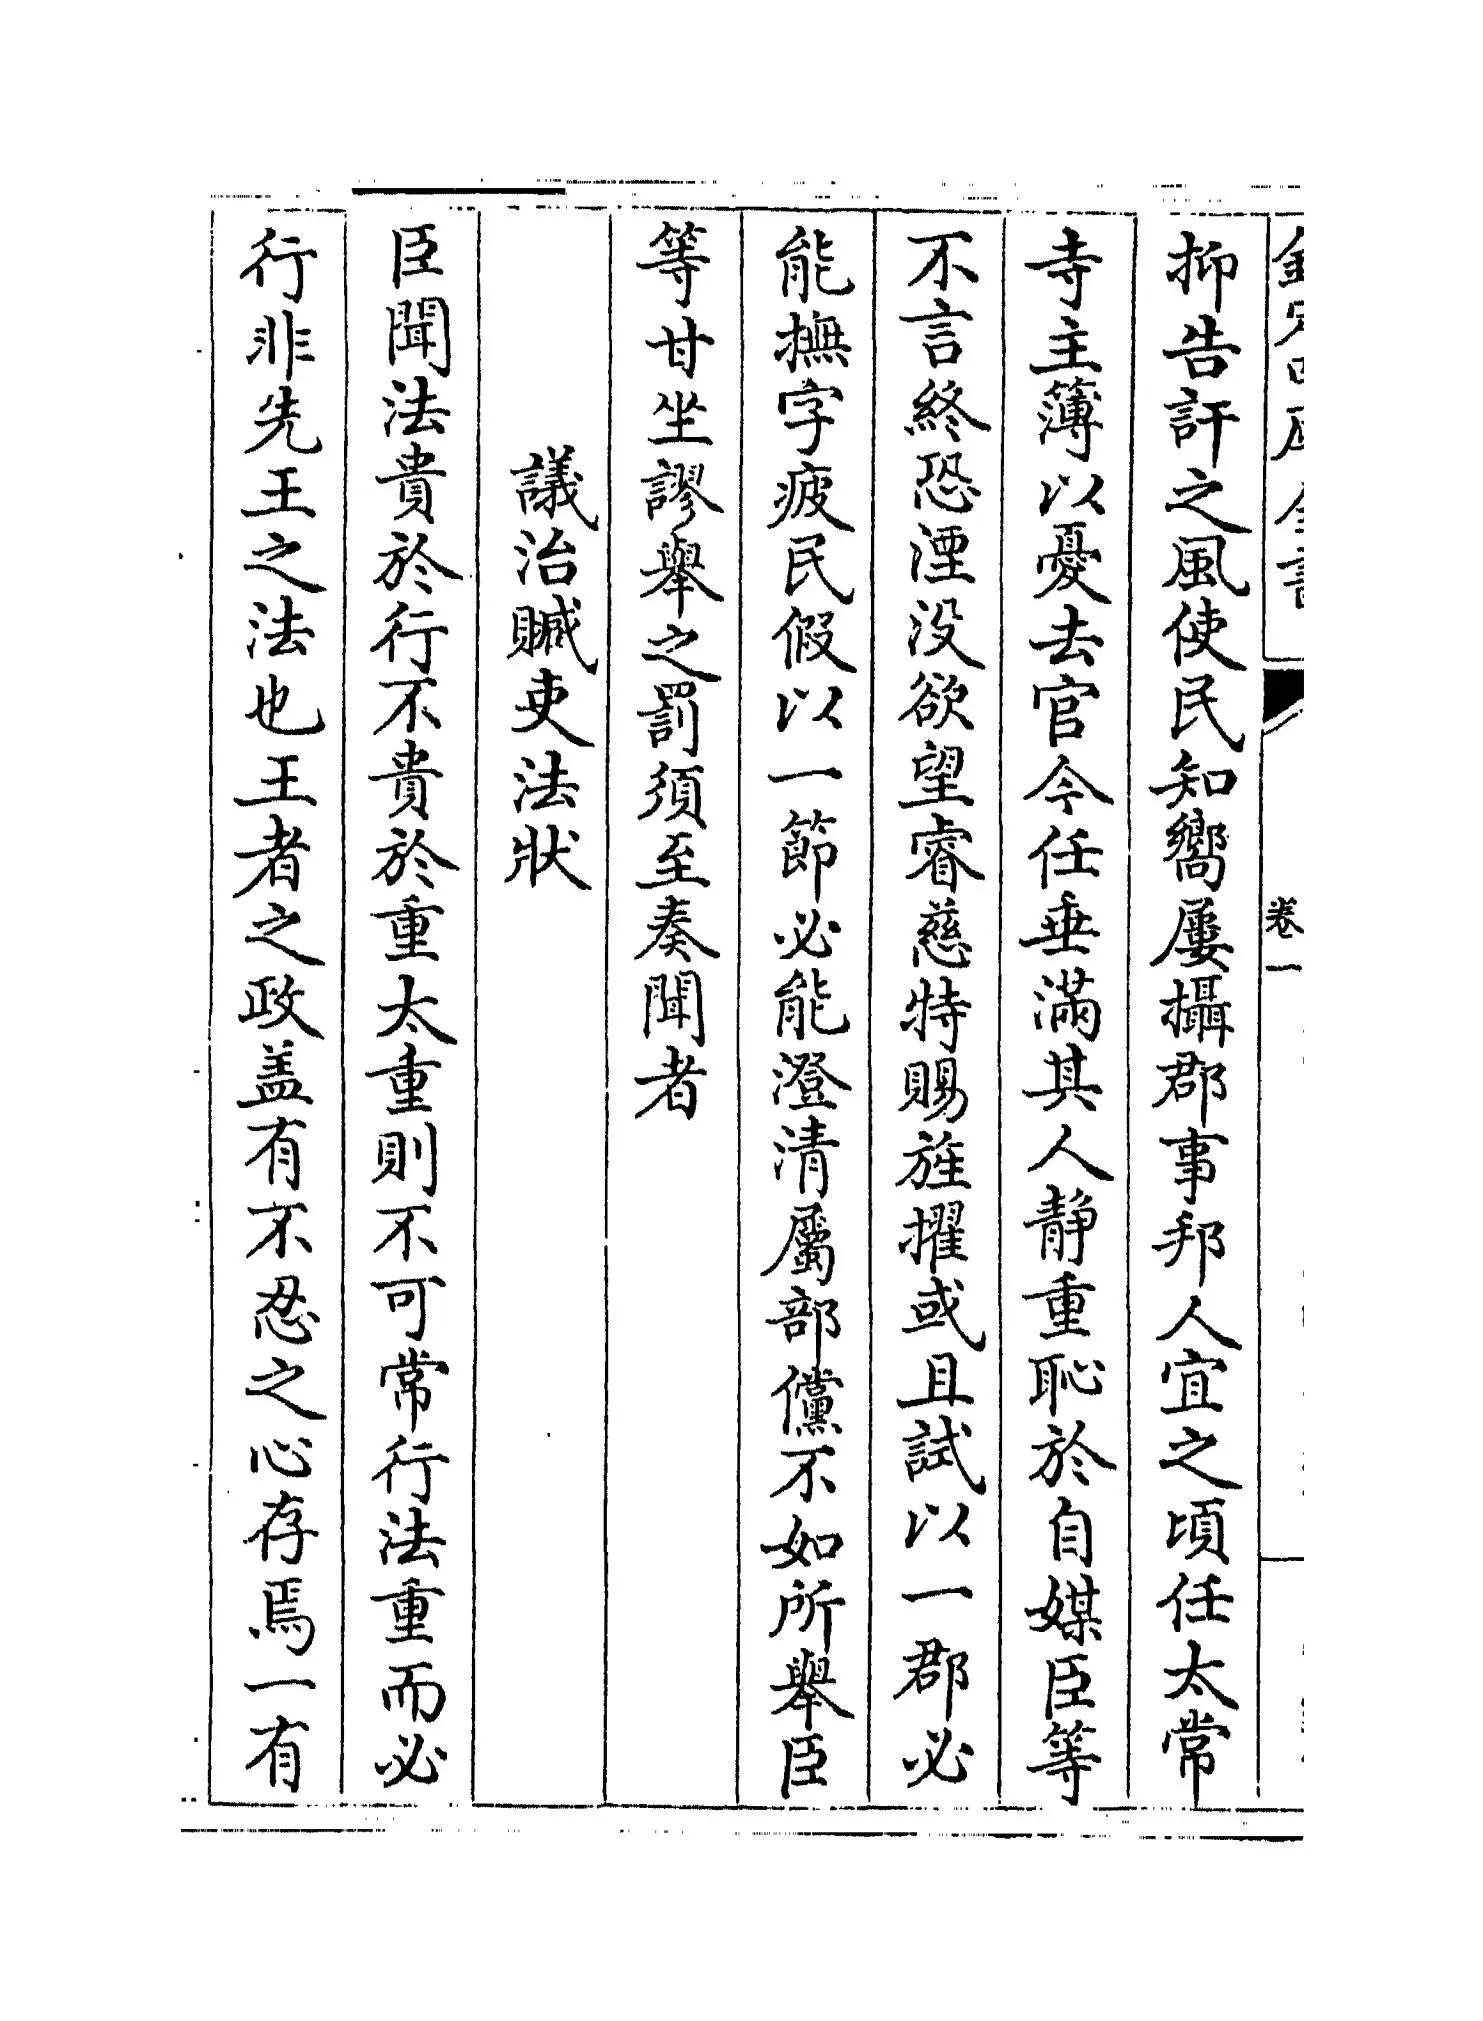 欽定四庫全書
卷一
抑告訐之風使民知嚮屢攝郡事邦人宜之頃任太常
寺主簿以憂去官今任垂滿其人靜重恥於自媒臣等
不言終恐湮没欲望睿慈特賜旌擢或且試以一郡必
能撫字疲民假以一節必能澄清屬部儻不如所舉臣
等甘坐謬舉之罰須至奏聞者
議治贓吏法狀
臣聞法貴於行不貴於重太重則不可常行法重而必
行非先王之法也王者之政盖有不忍之心存焉一有